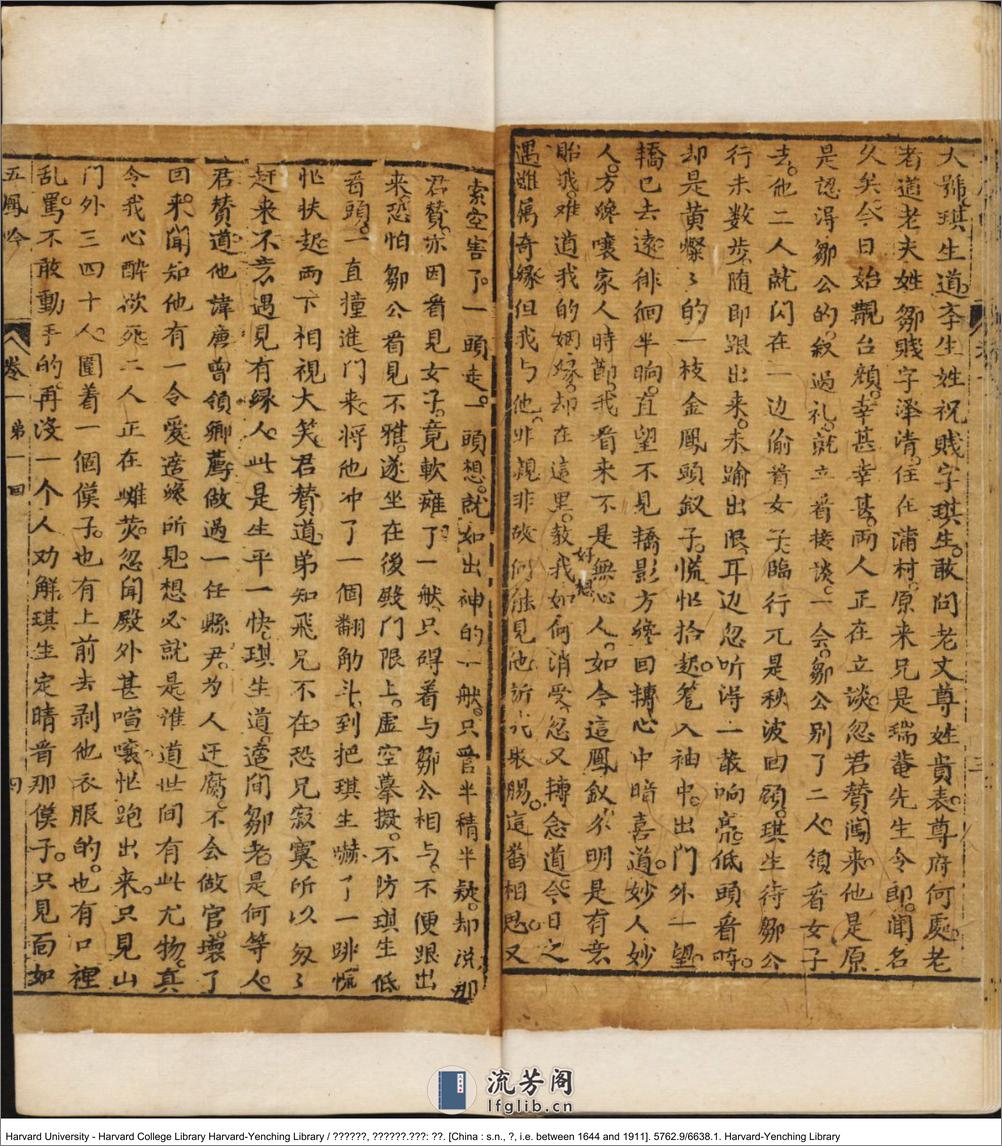 大號琪生道李生姓祝賤字琪生敢问老丈尊姓貴表尊府何處老
者道老夫姓鄒賤字泽清住在蒲村原来兄是瑞菴先生令郎闻名
久矣今日始觏台顔幸甚幸甚两人正在立談忽君賛闯来他是原
是認得鄒公的叙過礼就立着接谈一会鄒公别了二人領着女子
去他二人就闪在一边偷着女子臨行兀是秋波回顾琪生待鄒公
行未数步随即跟出来未踰出限耳边忽听得一声响亮低頭看時
却是黄燦々的一枝金鳳頭釵子慌忙拾起笼入袖中出門外一望
轎已去遠徘徊半晌直望不見轎影方纔回轉心中暗喜道妙人妙
人方纔嚷家人時節我看来不是無心人如今這鳳釵分明是有意
貽我难道我的姻缘却在這里教我如何消受忽又轉念道今日之
好想
遇雖属奇缘但我与他非親非故何能見他所以朱賜這畨相思又
索空害了一頭走一頭想就如出神的一般只管半積半疑却说那
君賛亦因看見女子竟軟癱了一般只碍着与鄒公相与不便跟出
来恐怕鄒公看見不雅遂坐在後殿門限上虚空摹拟不防琪生低
着頭一直撞進门来将他冲了一個翻觔斗到把琪生嚇了一跳慌
忙扶起两下相視大笑君賛道弟知飛兄不在恐兄寂寞所以匆々
赶来不意遇見有缘人此是生平一快琪生道適间鄒老是何等人
君賛道他諱廉曾領卿薦做過一任縣尹为人迂腐不会做官壊了
回来聞知他有一令愛適纔所見想必就是谁道世间有此尤物真
令我心醉欲死二人正在雌荧忽闻殿外甚喧嚷忙跑出来只見山
门外三四十人圍着一個儍子也有上前去剥他衣服的也有口裡
乱罵不敢動手的再没一个人劝解琪生定睛看那儍子只見面如
五鳳吟
卷一 第一回
四
流芳阁
lfglib.cn
Harvard University - Harvard College Library Harvard-Yenching Library / ??????, ??????.???: ??. [China : s.n., ?, i.e. between 1644 and 1911]. 5762.9/6638.1. Harvard-Yenching Library